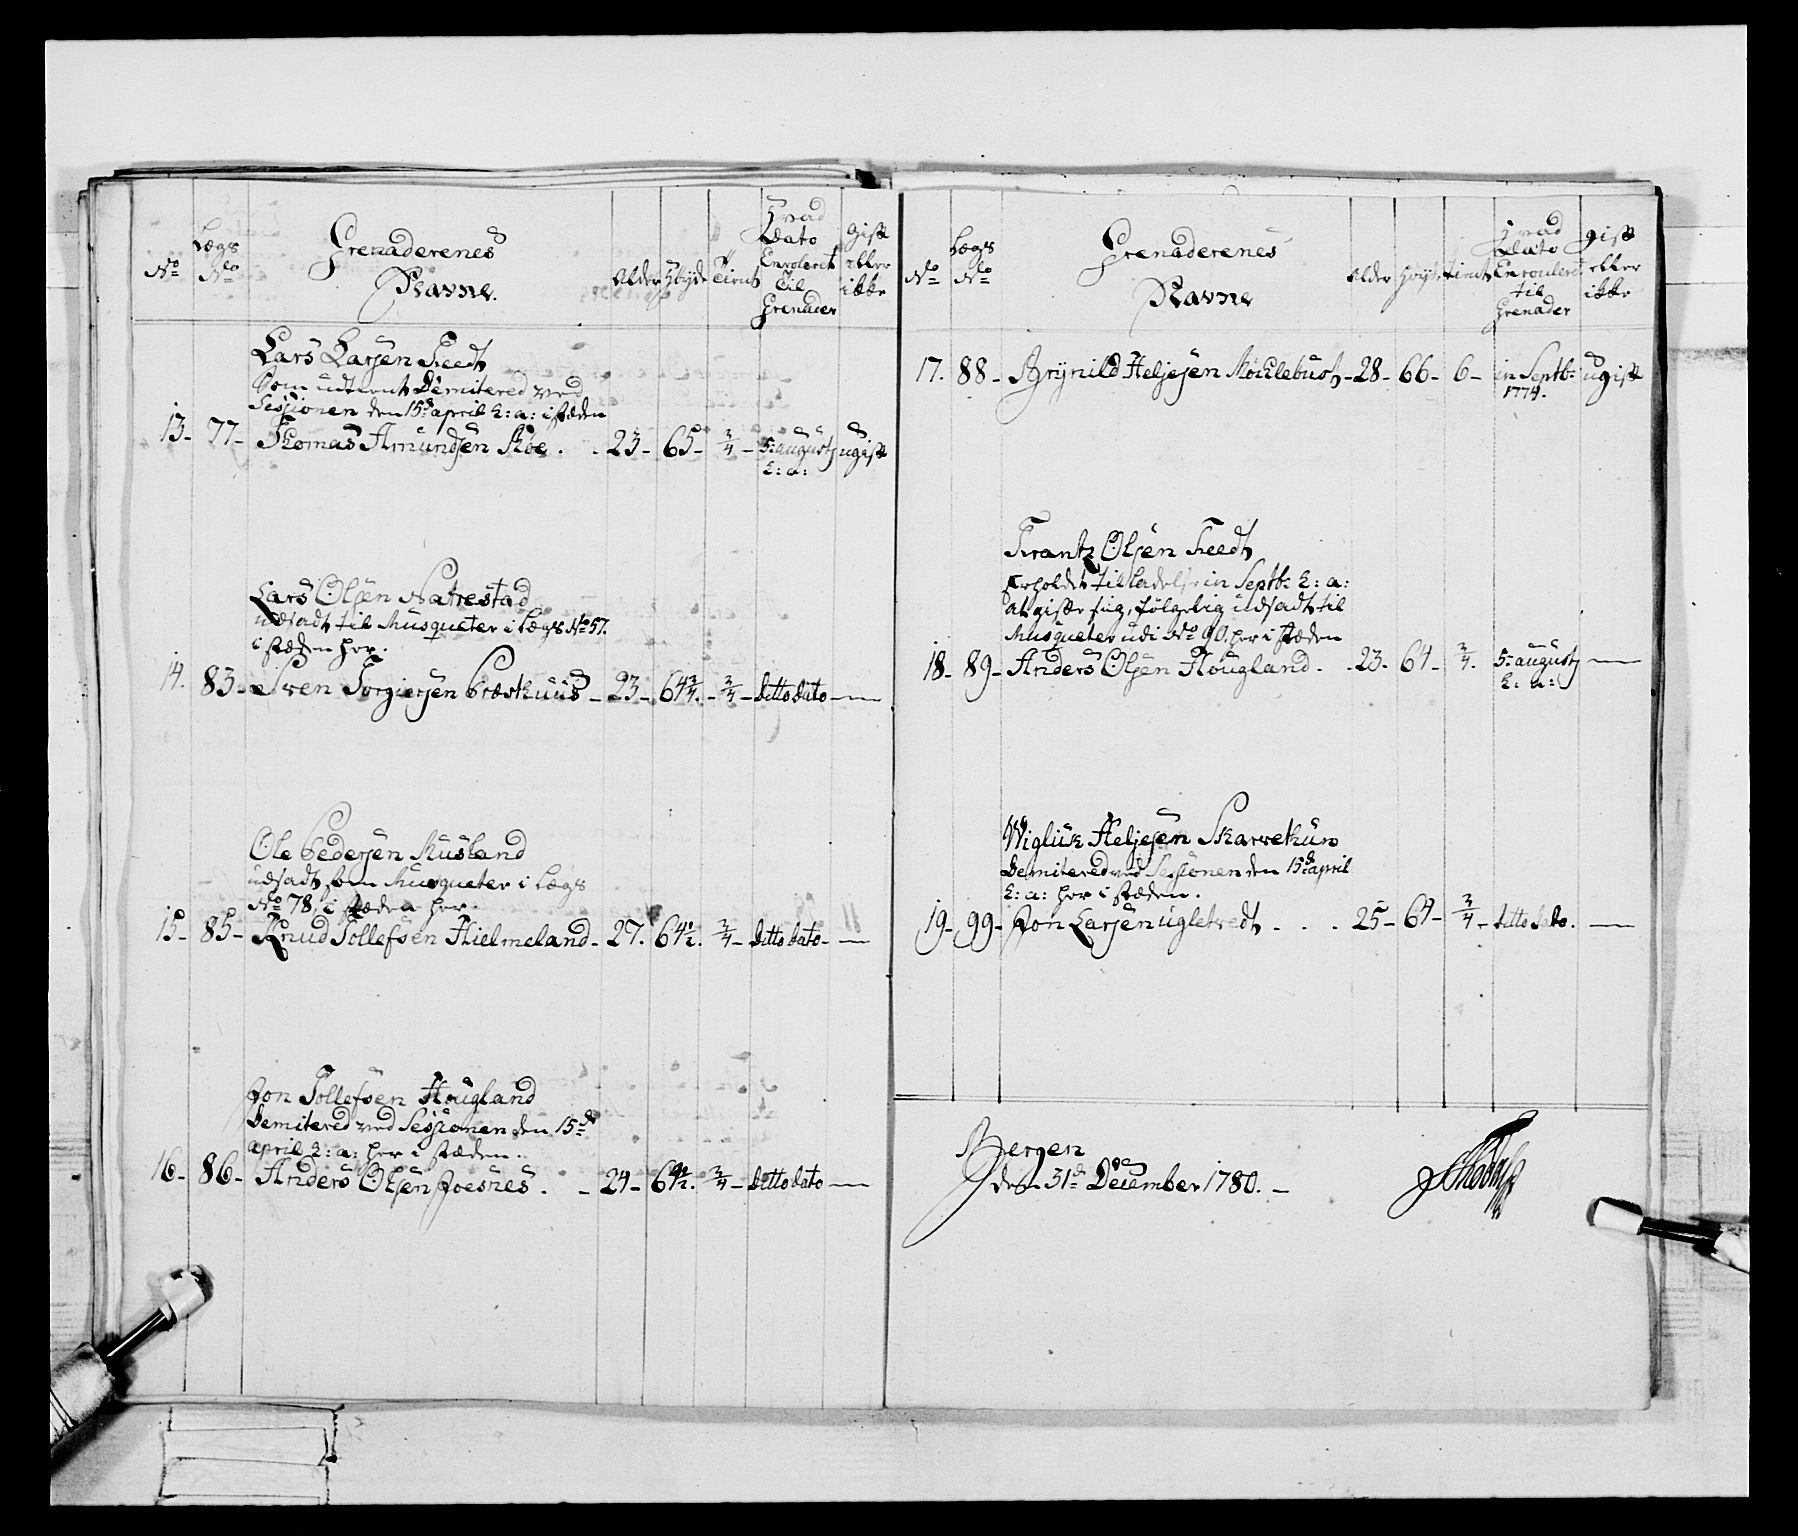 No
Lægs No
Grenaderenes Navne.
Alder
Høyde
Tient
Hvad Dato Enroleret Til Grenader
gift eller ikke
Lars Larsen Tvedt
som udtient Demitered ved
Sessionen den 15de april h: a: i stæden
13- 77- Thomas Amundsen Roe . . 23- 65- 3/4- 5: august ugift
h: a:
Lars Olsen Natrestad
udsadt til Musqueter i Lægs No 57.
i stæden her.
14. 83- Sven Torgiersen Præsthuus- 23- 64 3/4.- 3/4- ditto dato -
Ole Pedersen Musland
udsadt som Musqueter i Lægs
No 78, i stæden her.
15- 85- Knud Tollefsen Hielmeland- 27. 64 1/2. 3/4- ditto dato- -
Jon Tollefsen Hougland
Demitered ved Sessionen den 15de
april h: a: her i stæden.
16- 86- Anders Olsen Joesnes . - 24- 64 1/2. 3/4- ditto dato -
No
Lægs No
Grenaderenes Navne
Alder
Høyde
tient
Hvad Dato Enrouleret til Grenader
gift eller ikke
17. 88- Brynild Heljesen Mochlebust- 28- 66- 6- in Septb: ugift
1774.
Frantz Olsen Tvedt
erholdet tilladelse in Septb: h: a:
at gifte sig, følgelig udsadt til
Musqueter udi No 90. her i stæden
18- 89- Anders Olsen Hougland . . 23. 64- 3/4. 5: august -
h: a:
Wigliik Heljesen Skarvethun
Demitered ved Sessionen den 15de april
h: a: her i stæden.
19- 99- Jon Larsen ugletvedt . . . 25- 64- 3/4- ditto dato. -
Bergen
den 31de December 1780. -